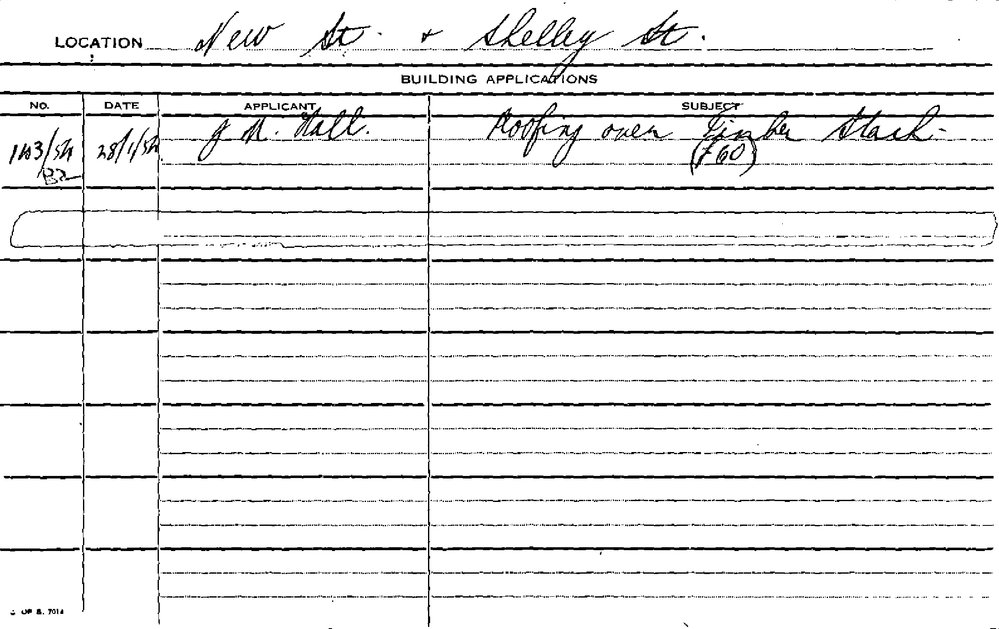 LOCATION New St. & Shelley St.
BUILDING APPLICATIONS
NO. DATE APPLICANT SUBJECT
28/1/54 Hall. Roofing over Timber Stack
(£60)
B2